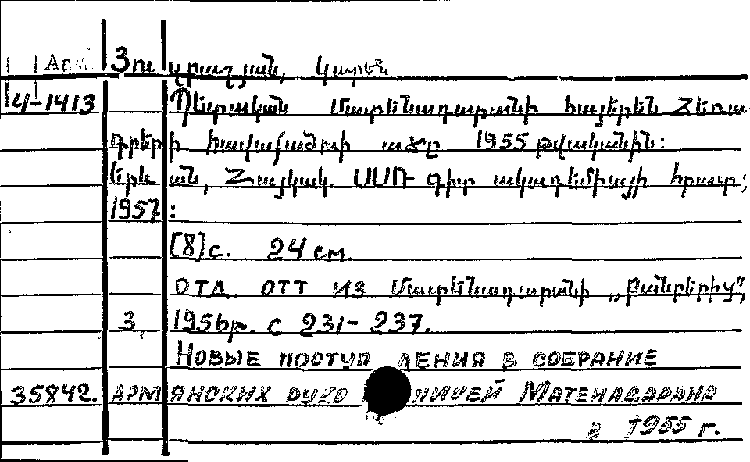 Арм. Յուզբաշյան, Կարեն
Ч-1413 Պետական Մատենադարանի հայերեն ձեռա-
գրերի հավաքածուի աճը 1955 թվականին:
Երևան, Հայկակ. ՍՍՌ գիտ. ակադեմիայի հրատ.,
1957:
[8] с. 24 см.
Отд. отт из Մատենադարանի „Բանբերից",
3, 1956թ. с 231-237.
Новые поступления в собрание
35842. армянских рукописей Матенадарана
в 1955 г.